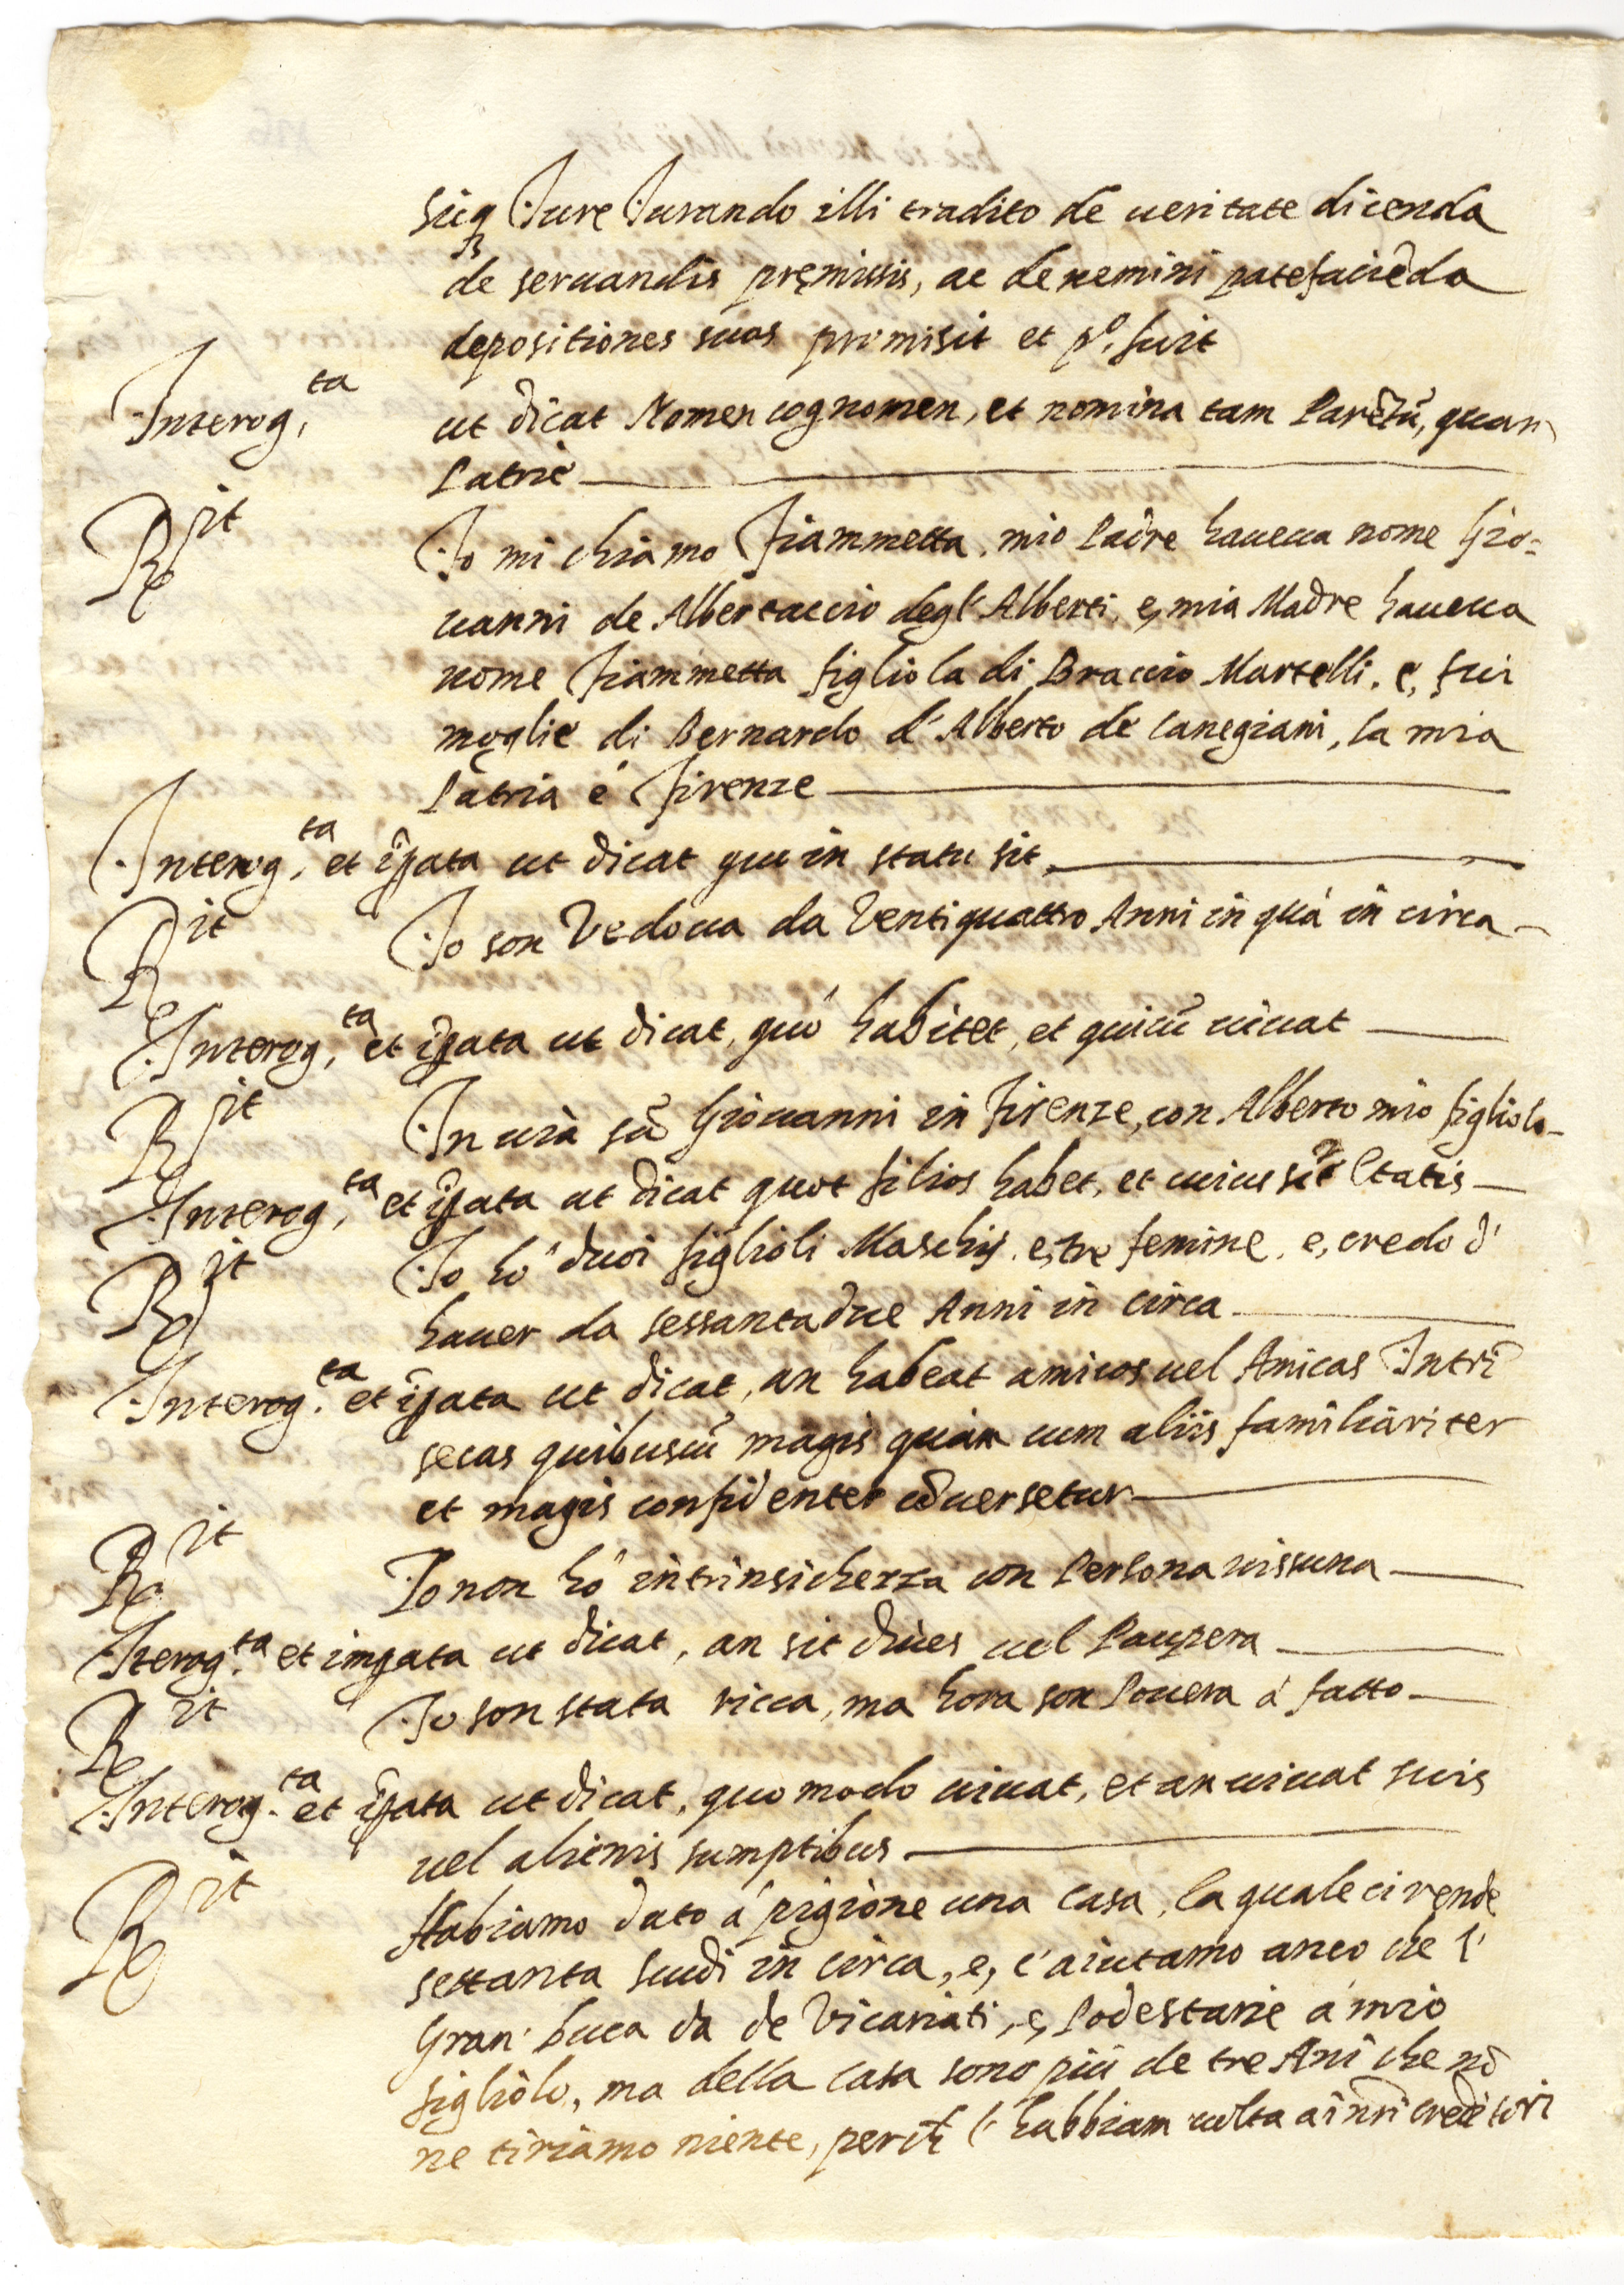 Iure Iurando illi tradito de ueritate dicenda
de seruandis pręmissis, ac de nemini patefaciẽda
depositiones suas promisit et fuit
Interog.ta ut dicat Nomen cognomen, et nomina tam Parẽtũ, quam
Patrie
Rit Io mi chiamo Fiammetta. mio Padre haueua nome Gio=
uanni de Albertaccio degl' Alberti, e, mia Madre haueua
nome Fiammetta figliola di Braccio Martelli. e, fui
moglie di Bernardo d'Alberto de Canegiani, la mia
Patria è Firenze
Interog.ta et ĩpata ut dicat quo in statu sit
Rit Io son Vedoua da Ventiquattro Anni in quà in circa
Interog.ta et ĩpata ut dicat, quò habitet, et quicũ uiuat
Rit In uia Giouanni in Firenze, con Alberto mio figliolo
Interog.ta et ĩpata ut dicat quot filios habet, et cuius sit Etatis
Rit Io hò duoi figlioli Maschij. e, tre femine. e, credo d'
hauer da sessantadue Anni in circa
Interog.ta et ĩpata ut dicat, an habeat amicos uel Amicas Intrĩ
secas quibuscũ magis quam cum aliis familiariter
et magis confidenter cõuersetur
Rit Io non hò intrinsichezza con Persona nissuna
Iterog.ta et impata ut dicat, an sit diues uel Paupera
Rit Io son stata ricca, ma hora son Pouera à fatto
Interog.ta et ĩpata ut dicat, quo modo uiuat, et an uiuat suis
uel alienis sumptibus
Rit Habiamo dato à pigione una casa, la quale ci rende
settanta scudi in circa, e, c'aiutamo anco che l'
Gran' Duca da de Vicariati, e, Podestarie à mio
figliolo, ma della casa sono più de tre Anĩ che nõ
ne tiriamo niente, perche l'habbiam uolta a i nr̃i creditori